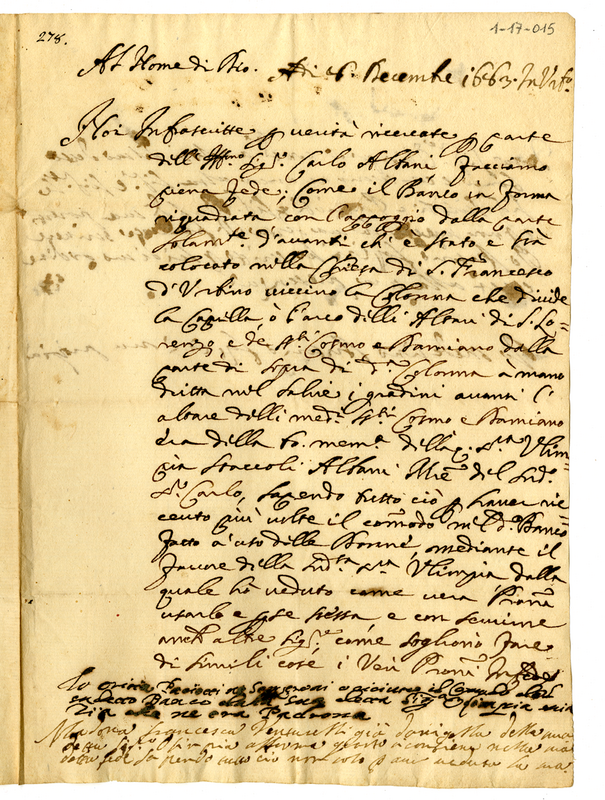 278.
1-17-015
Al Nome di Dio. Adi 6. Decembe 1663. In Urb.o
Noi Infascritte p verità ricercate p parte
dell' Ill.mo Sig.r Carlo Albani facciamo
piena fede, come il Banco in forma
riquadrata con l'appoggio dalla parte
solam.te d'avanti ch' è stato e stà
colocato nella Chiesa di S. Francesco
d'Urbino viccino la Colonna che divide
la Capella, o l'arco delli Altari di S. Lo=
renzo, e de S.ti Cosmo e Damiano dalla
parte di sopra di d.a Colonna à mano
dritta nel salire i gradini avanti l'
altare delli med.i S.ti Cosmo e Damiano
era della fe. mem.a della q. S.ra Ulim=
pia Staccoli Albani M.e del sud.o
S.r Carlo, sapendo tutto ciò p haver ri=
ceuto più volte il comodo nel d.o Banco
fatto à uso delle Donne, mediante il
favore della sud.ta S.ra Ulimpia dalla
quale hò veduto come vera Pronā
usarlo e p se stessa, e con servirne
anch' altre Sig.re come sogliono fare
di simili cose i Veri Pronī In fede
Io
Banco dalla sua Sig.ra Olimpia
che ne era Padrona
Francesca Venturelli già donzella della
Sig.ra affermo quanto si contiene nella
fede sapendo tutto ciò non solo p aver veduto la